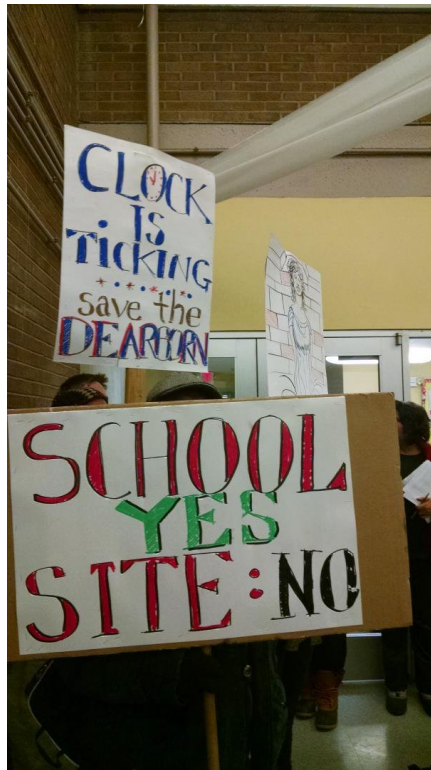 CLOCK
IS
TICKING
save the
DEARBORN
SCHOOL
YES
SITE: NO